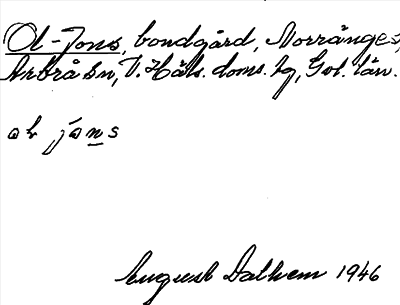 Ol-Jons, bondgård, Norränges,
Arbrå sn, V. Häls. doms. hg, Gvl. län.
ol jons
August Dalhem 1946